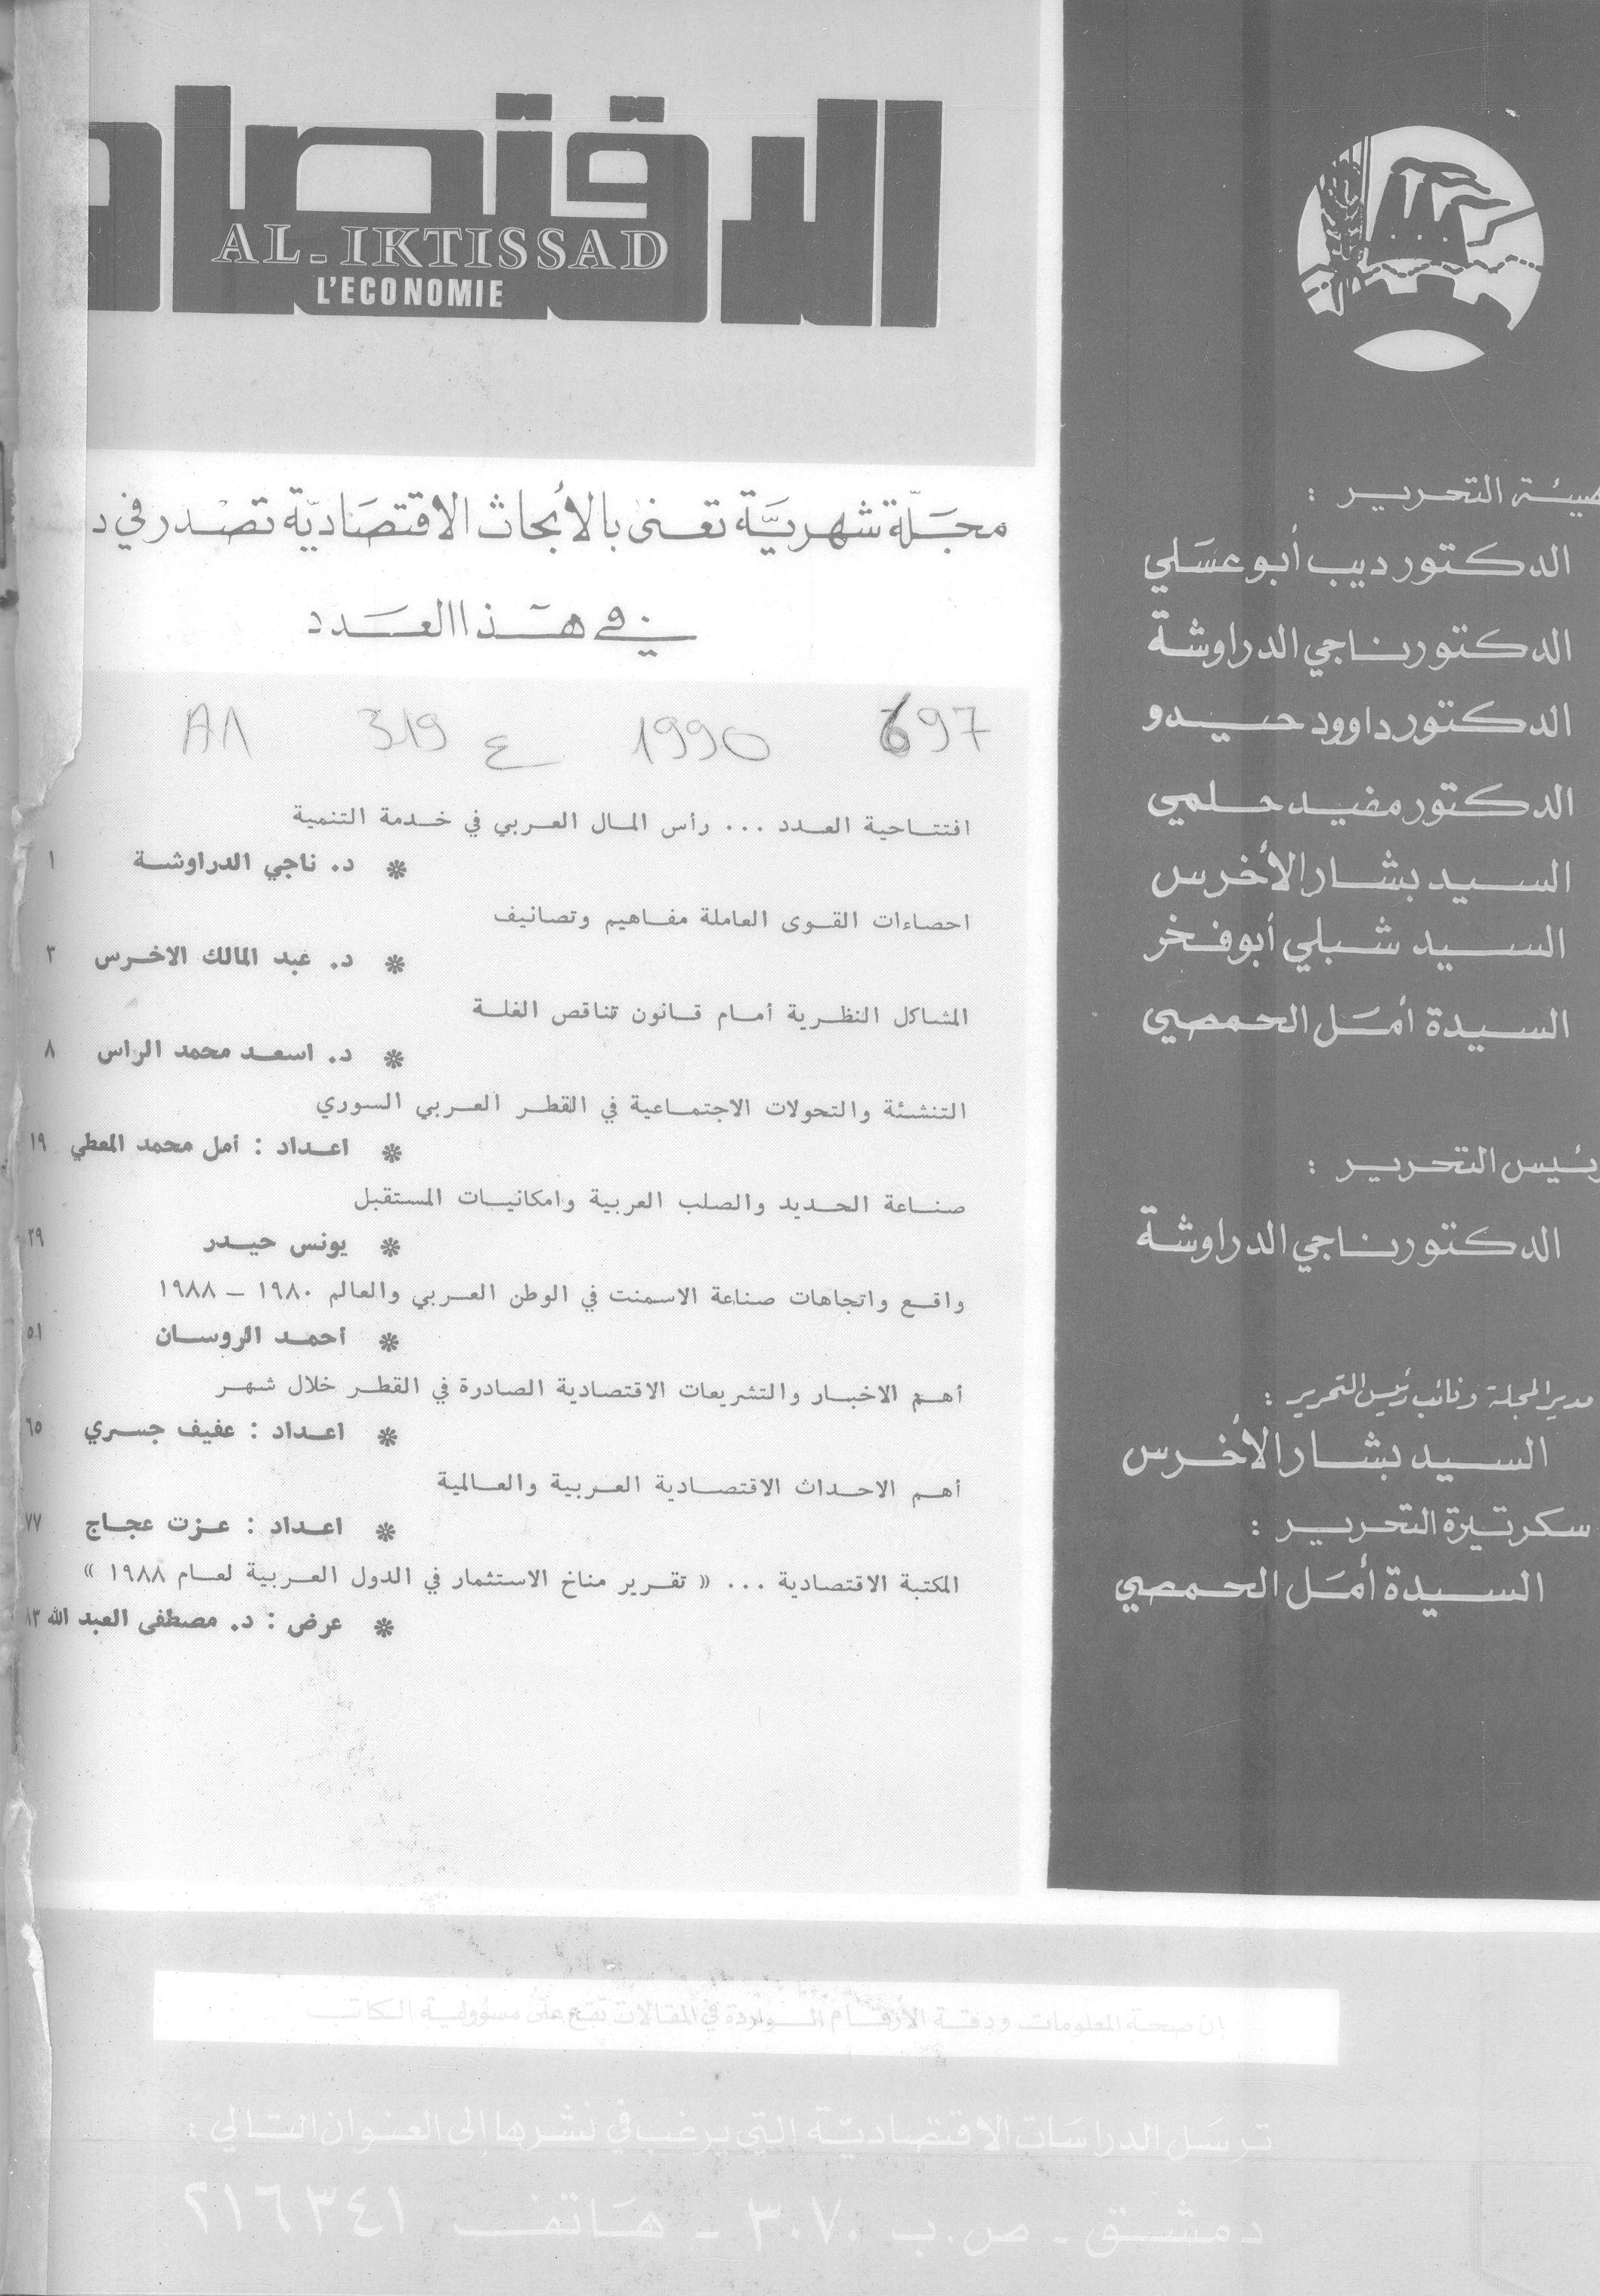 الاقتصاد
AL-IKTISSAD
L'ECONOMIE
مجلة شهرية تعنى بالأبحاث الاقتصادية تصدر في د
في هذا العدد
697 1990 ع 319 ٨٨
افتتاحية العدد ... رأس المال العربي في خدمة التنمية
* د. ناجي الدراوشة ١
احصاءات القوى العاملة مفاهيم وتصانيف
* د. عبد المالك الاخرس ٣
المشاكل النظرية أمام قانون تناقص الغلة
* د. اسعد محمد الراس ٨
التنشئة والتحولات الاجتماعية في القطر العربي السوري
* اعداد : أمل محمد المعطي ١٩
صناعة الحديد والصلب العربية وامكانيات المستقبل
* يونس حيدر ٢٩
واقع واتجاهات صناعة الاسمنت في الوطن العربي والعالم ١٩٨٠ – ١٩٨٨
* أحمد الروسان ٥١
أهم الاخبار والتشريعات الاقتصادية الصادرة في القطر خلال شهر
* اعداد : عفيف جسري ٦٥
أهم الاحداث الاقتصادية العربية والعالمية
* اعداد : عزت عجاج ٧٧
المكتبة الاقتصادية ... « تقرير مناخ الاستثمار في الدول العربية لعام ١٩٨٨ »
* عرض : د. مصطفى العبد الله ٨٣
هيئة التحرير :
الدكتور ديب أبو عسلي
الدكتور ناجي الدراوشة
الدكتور داوود حيدو
الدكتور مفيد حلمي
السيد بشار الأخرس
السيد شبلي أبو فخر
السيدة أمل الحمصي
رئيس التحرير :
الدكتور ناجي الدراوشة
مدير المجلة ونائب رئيس التحرير :
السيد بشار الأخرس
سكرتيرة التحرير :
السيدة أمل الحمصي
ان صحة المعلومات ودقة الأرقام الواردة في المقالات تقع على مسؤولية الكاتب
ترسل الدراسات الاقتصادية التي يرغب في نشرها إلى العنوان التالي :
دمشق - ص.ب ٣٠٧٠ - هاتف ٢١٦٣٤١